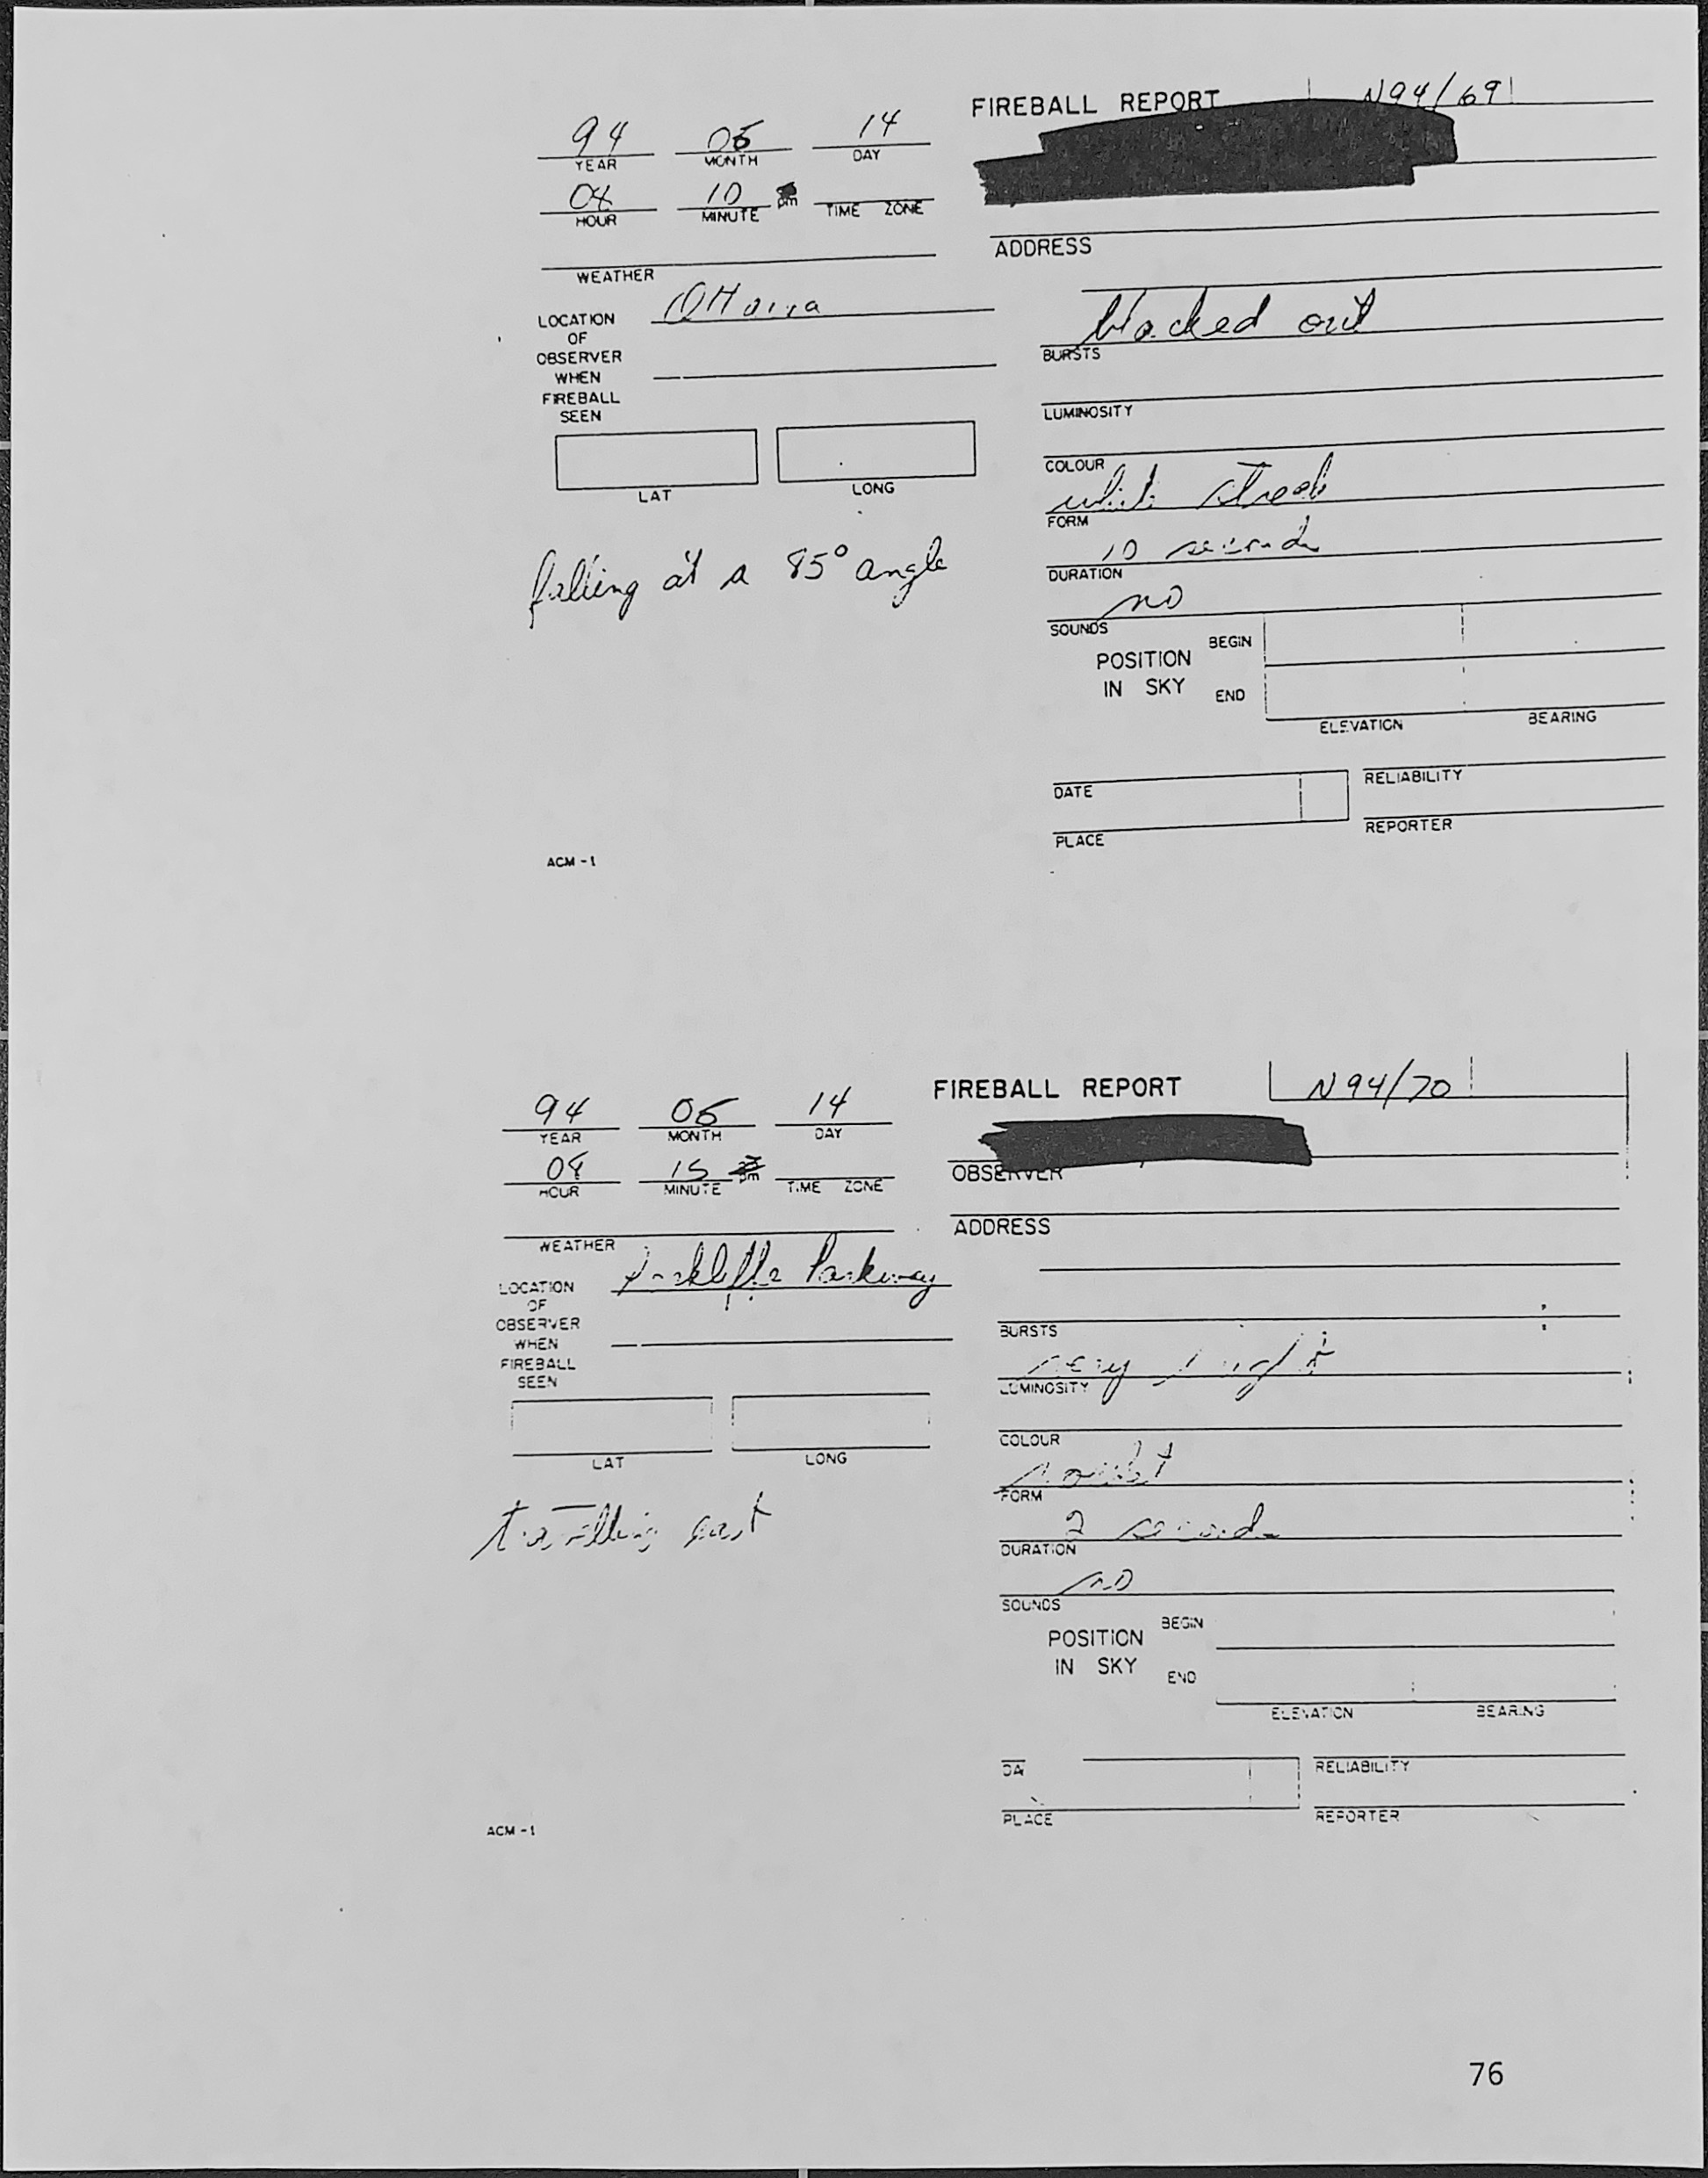 FIREBALL REPORT N94/69
94 05 14
YEAR MONTH DAY
10 pm
HOUR MINUTE TIME ZONE
ADDRESS
WEATHER
Ottawa
LOCATION
OF
OBSERVER
WHEN
FIREBALL
SEEN
LAT LONG
falling at a 85° angle
blacked out
BURSTS
LUMINOSITY
COLOUR
white streak
FORM
10 seconds
DURATION
no
SOUNDS
POSITION
IN SKY
BEGIN
END
ELEVATION BEARING
DATE
RELIABILITY
PLACE
REPORTER
ACM-1
FIREBALL REPORT N94/70
94 05 14
YEAR MONTH DAY
15 pm
HOUR MINUTE TIME ZONE
OBSERVER
ADDRESS
WEATHER
Rockliffe Parkway
LOCATION
OF
OBSERVER
WHEN
FIREBALL
SEEN
LAT LONG
travelling east
BURSTS
very bright
LUMINOSITY
COLOUR
FORM
2 seconds
DURATION
no
SOUNDS
POSITION
IN SKY
BEGIN
END
ELEVATION BEARING
DA
RELIABILITY
PLACE
REPORTER
ACM-1
76